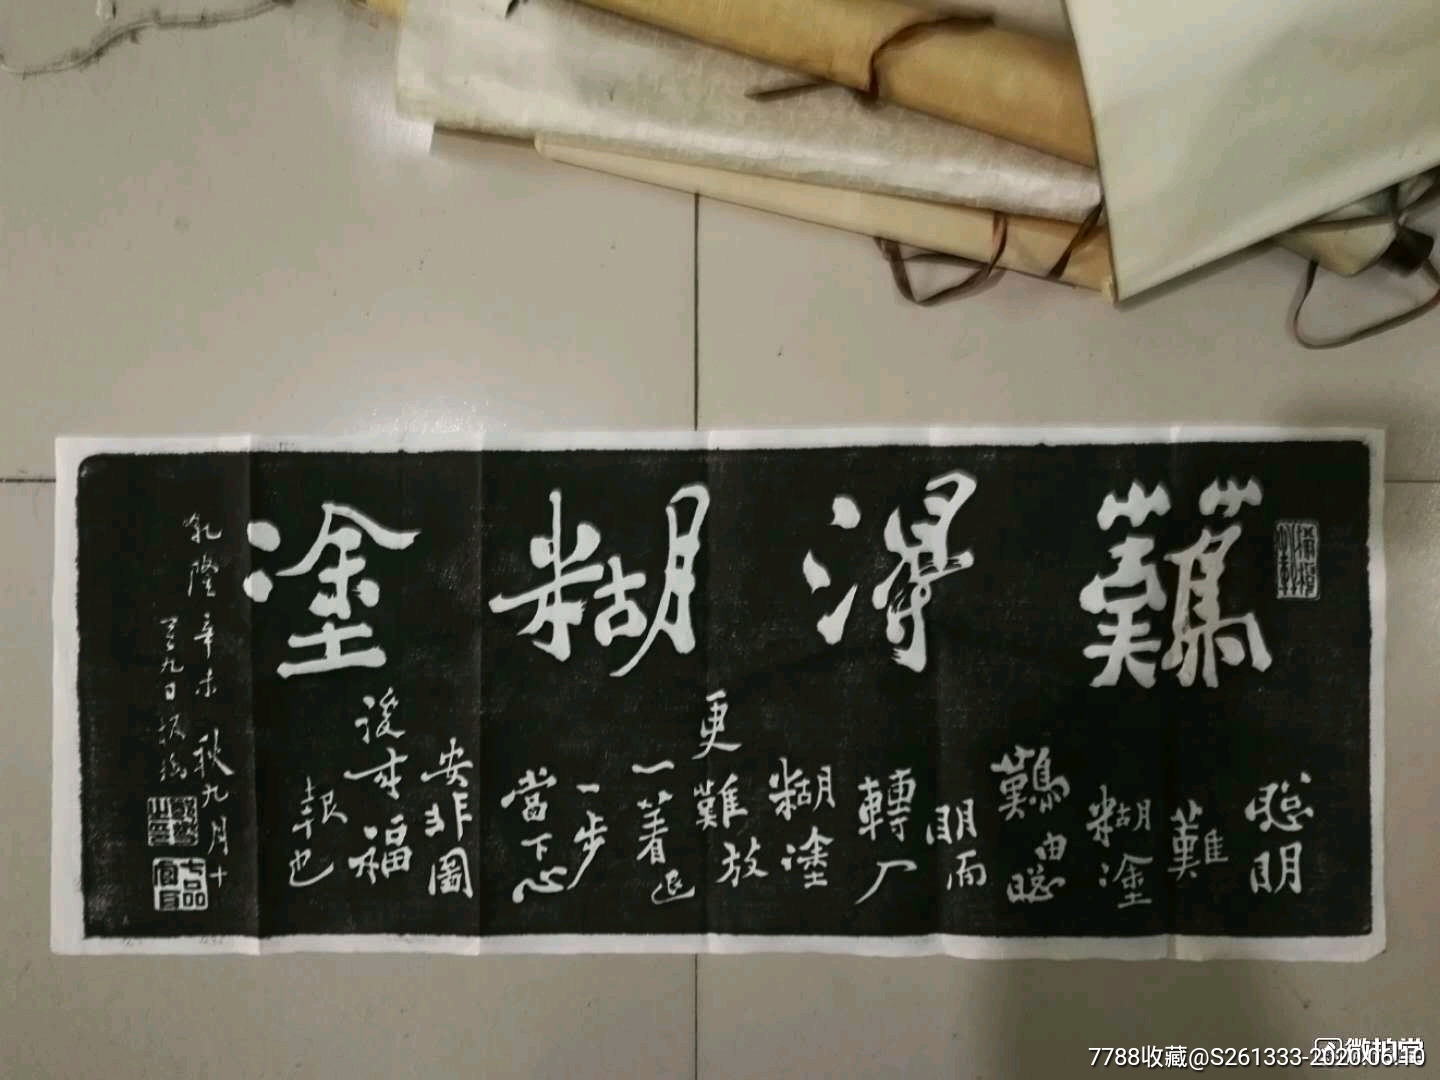 難得糊塗
聰明
難
糊塗
難由聰
明而
轉入
糊塗
更難放
一着退
一步
當下心
安非圖
後來福
報也
乾隆辛未秋九月十
有九日板橋
鄭燮之印
七品官耳
微拍堂
7788收藏@S261333-2020.06.10